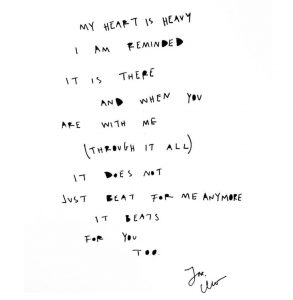 MY HEART IS HEAVY
I AM REMINDED
IT IS THERE
AND WHEN YOU
ARE WITH ME
(THROUGH IT ALL)
IT DOES NOT
JUST BEAT FOR ME ANYMORE
IT BEATS
FOR YOU
TOO.